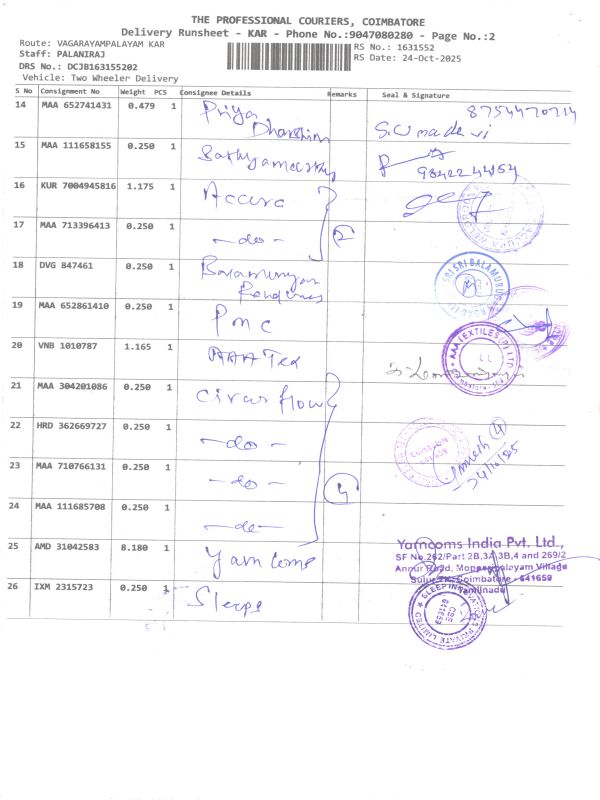 THE PROFESSIONAL COURIERS, COIMBATORE
Delivery Runsheet - KAR - Phone No.:9047080280 - Page No.:2
Route: VAGARAYAMPALAYAM KAR
Staff: PALANIRAJ
DRS No.: DCJB163155202
Vehicle: Two Wheeler Delivery
RS No.: 1631552
RS Date: 24-Oct-2025
S No Consignment No Weight PCS Consignee Details Remarks Seal & Signature
14 MAA 652741431 0.479 1 Priya
S.Umadevi
15 MAA 111658155 0.250 1
16 KUR 7004945816 1.175 1 Accura
17 MAA 713396413 0.250 1 -do- 2
18 DVG 847461 0.250 1 Balamurugan
SRI SRI BALAMURUGAN
19 MAA 652861410 0.250 1 PMC
20 VNB 1010787 1.165 1 AAA Tex
AAA TEXTILES (P) LTD
21 MAA 304201086 0.250 1 Circar flow
22 HRD 362669727 0.250 1 -do-
4
24/10/25
23 MAA 710766131 0.250 1 -do- 4
24 MAA 111685708 0.250 1 -do-
25 AMD 31042583 8.180 1 Yarn Coms
Yarncoms India Pvt. Ltd.,
SF No.262/Part 2B,3A,3B,4 and 269/2
Annur Road, Mopperipalayam Village
Sulur TK, Coimbatore - 641659
Tamilnadu
26 IXM 2315723 0.250 1 Sleeps
SLEEP INNOVATIONS PRIVATE LIMITED
CBE
641659